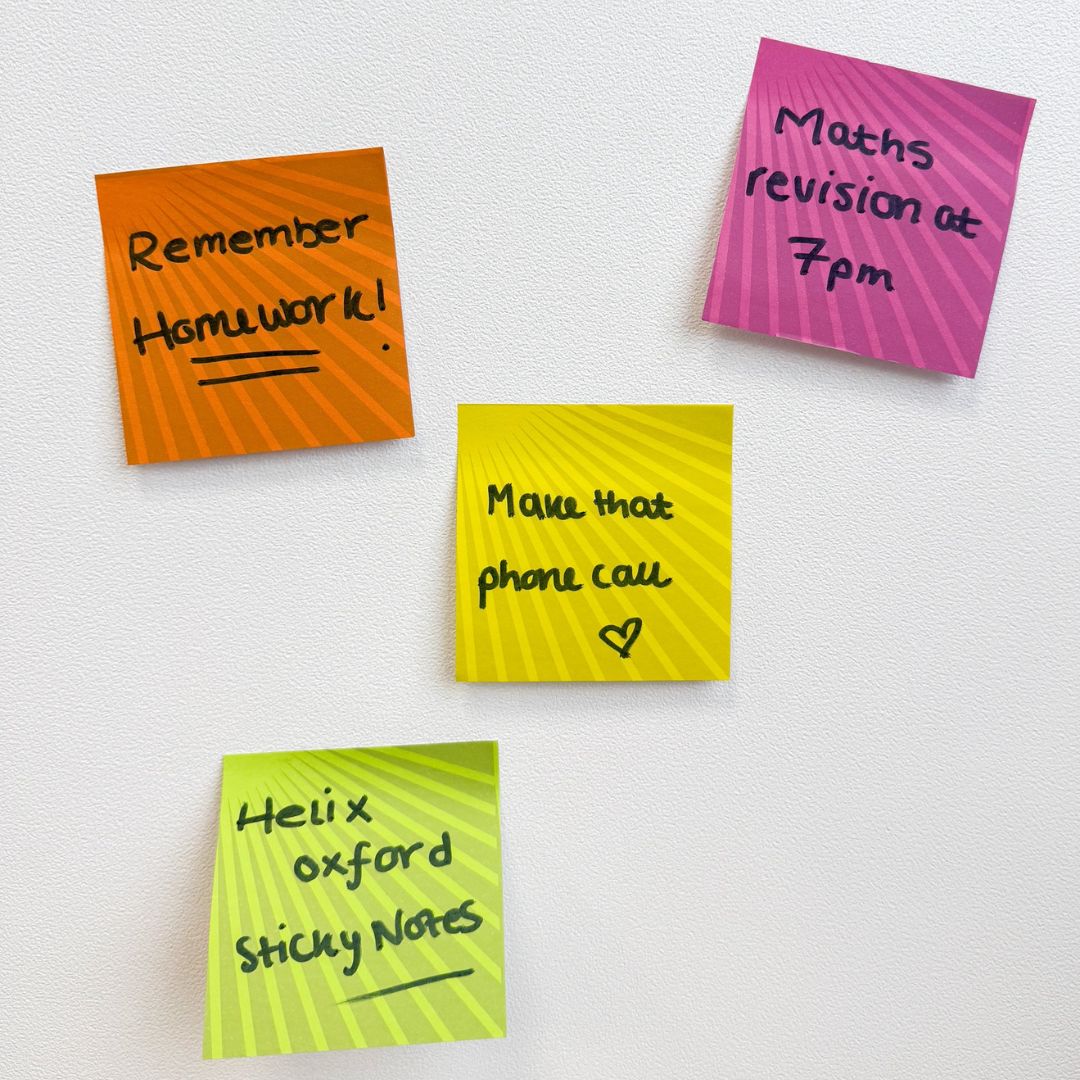 Remember
Homework!
Maths
revision at
7pm
Make that
phone call
Helix
oxford
Sticky Notes